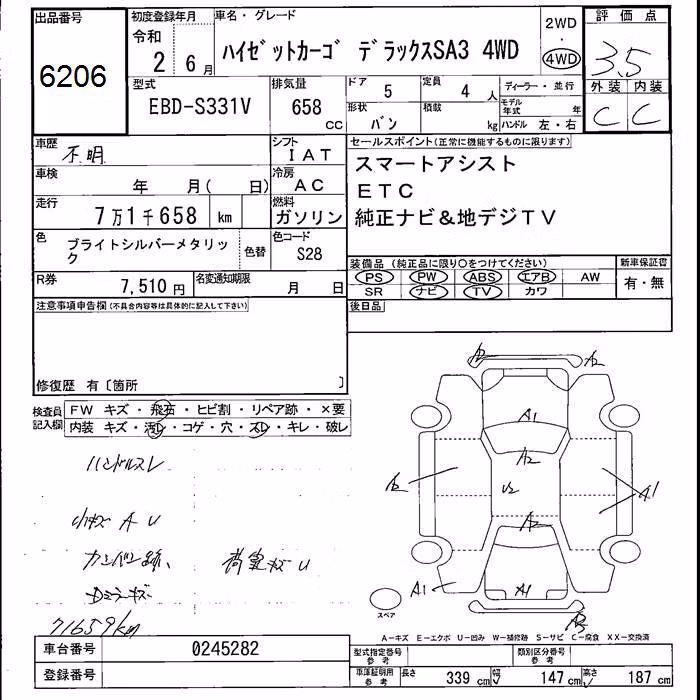 出品番号
6206
初度登録年月
令和
2 6月
車名・グレード
ハイゼットカーゴ デラックスSA3 4WD
2WD
・
4WD
評価点
3.5
外装 内装
C C
型式
EBD-S331V
排気量
658
CC
ドア
5
定員
4 人
ディーラー・並行
形状
バン
積載
kg
モデル年式
年
ハンドル 左・右
車歴
不明
シフト
IAT
車検
年 月( 日)
冷房
AC
走行
7万1千658 km
燃料
ガソリン
色
ブライトシルバーメタリック
色替
色コード
S28
R券
7,510円
名変通知期限
月 日
セールスポイント(正常に機能するものに限ります)
スマートアシスト
ETC
純正ナビ&地デジTV
装備品(純正品に限り○をつけてください)
PS PW ABS エアB AW
SR ナビ TV カワ
新車保証書
有・無
後日品
注意事項申告欄(不具合内容等は具体的に記入して下さい)
修復歴 有〔箇所 〕
検査員記入欄
FW キズ・飛石・ヒビ割・リペア跡・×要
内装 キズ・汚レ・コゲ・穴・スレ・キレ・破レ
ハンドルスレ
小キズ A U
カンバン跡、 荷室キズU
Dミラーキズ
71659km
A2
A2
A1
A2
A2
U2
A1
A2
A1
A1
スペア
A-キズ E-エクボ U-凹み W-補修跡 S-サビ C-腐食 XX-交換済
車台番号
0245282
登録番号
型式指定番号
参考
類別区分番号
参考
車庫証明用
参考
長さ 339 cm
幅 147 cm
高さ 187 cm